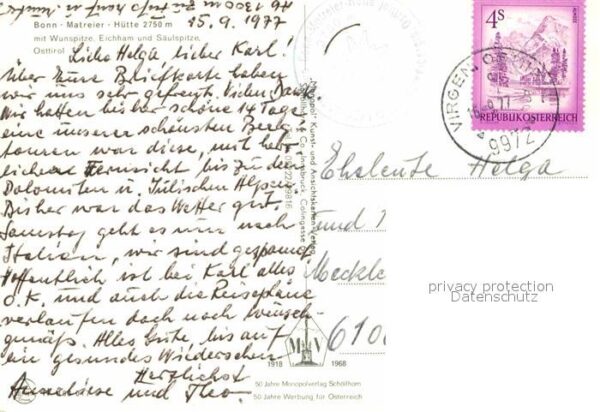 Bonn - Matreier - Hütte 2750 m
15.9.1977
mit Wunspitze, Eichham und Säulspitze,
Osttirol
Liebe Helga, lieber Karl!
Über Eure Briefkarte haben
wir uns sehr gefreut. Vielen Dank.
Wir hatten bisher schöne 14 Tage
eine unserer schönsten Berg
touren war diese, mit herr
licher Fernsicht bis zu den
Dolomiten u. Julischen Alpen.
Bisher war das Wetter gut.
Samstag geht es nun nach
Italien, wir sind gespannt
Hoffentlich ist bei Karl alles
O.K. und auch die Reisepläne
verlaufen doch noch wunsch-
gemäß. Alles Gute, bis auf
ein gesundes Wiedersehen
Herzlichst
Anneliese und Theo.
"Monopol" Kunst- und Ansichtskarten-Verlag
Schöllhorn & Co., Innsbruck, Colingasse
4S
REPUBLIK ÖSTERREICH
VIRGEN, OSTTIROL
9972
Eheleute Helga
und
Meckle
610
privacy protection
Datenschutz
MV
1918 1968
50 Jahre Monopolverlag Schöllhorn
50 Jahre Werbung für Österreich